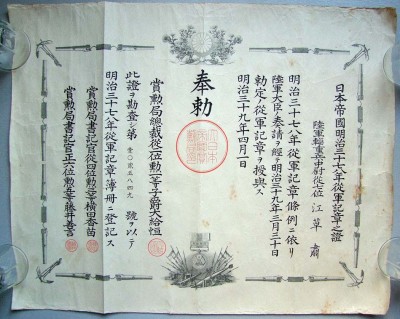 日本帝國明治三十七八年從軍記章之證
陸軍輜重兵中尉從七位 江草
明治三十七八年從軍記章條例ニ依リ
陸軍大臣ノ奏請ヲ經テ明治三十九年三月三十日
勅定ノ從軍記章ヲ授與ス
明治三十九年四月一日
奉勅
賞勲局總裁從二位勲一等子爵大給恒
此證ヲ勘査シ第 五八四九 號ヲ以テ
明治三十七八年從軍記章簿冊ニ登記ス
賞勲局書記官從四位勲三等横田香苗
賞勲局書記官正六位勲五等藤井善言